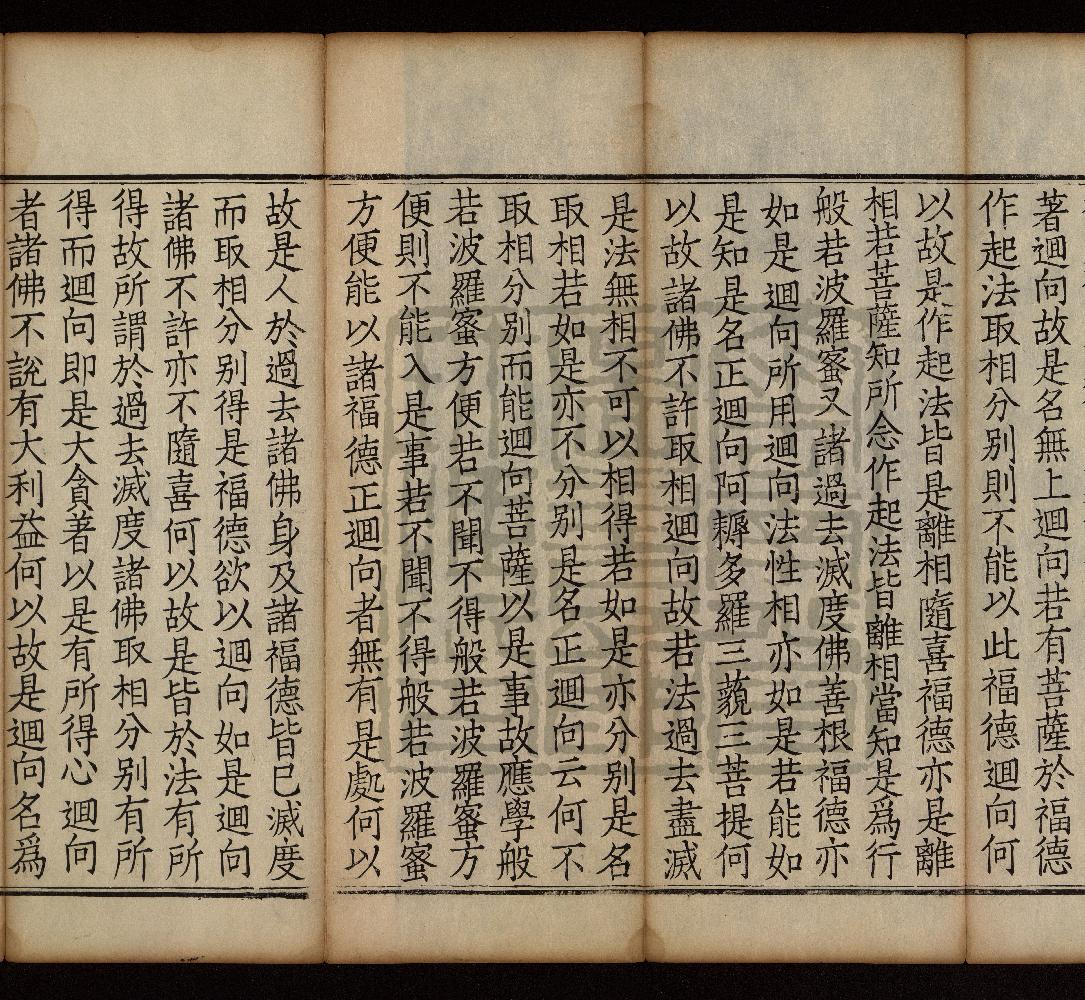 著迴向故是名無上迴向若有菩薩於福德
作起法取相分别則不能以此福德迴向何
以故是作起法皆是離相隨喜福德亦是離
相若菩薩知所念作起法皆離相當知是爲行
般若波羅蜜又諸過去滅度佛善根福德亦
如是迴向所用迴向法性相亦如是若能如
是知是名正迴向阿耨多羅三藐三菩提何
以故諸佛不許取相迴向故若法過去盡滅
是法無相不可以相得若如是亦分别是名
取相若如是亦不分别是名正迴向云何不
取相分别而能迴向菩薩以是事故應學般
若波羅蜜方便若不聞不得般若波羅蜜方
便則不能入是事若不聞不得般若波羅蜜
方便能以諸福德正迴向者無有是處何以
故是人於過去諸佛身及諸福德皆已滅度
而取相分别得是福德欲以迴向如是迴向
諸佛不許亦不隨喜何以故是皆於法有所
得故所謂於過去滅度諸佛取相分别有所
得而迴向即是大貪著以是有所得心迴向
者諸佛不說有大利益何以故是迴向名爲